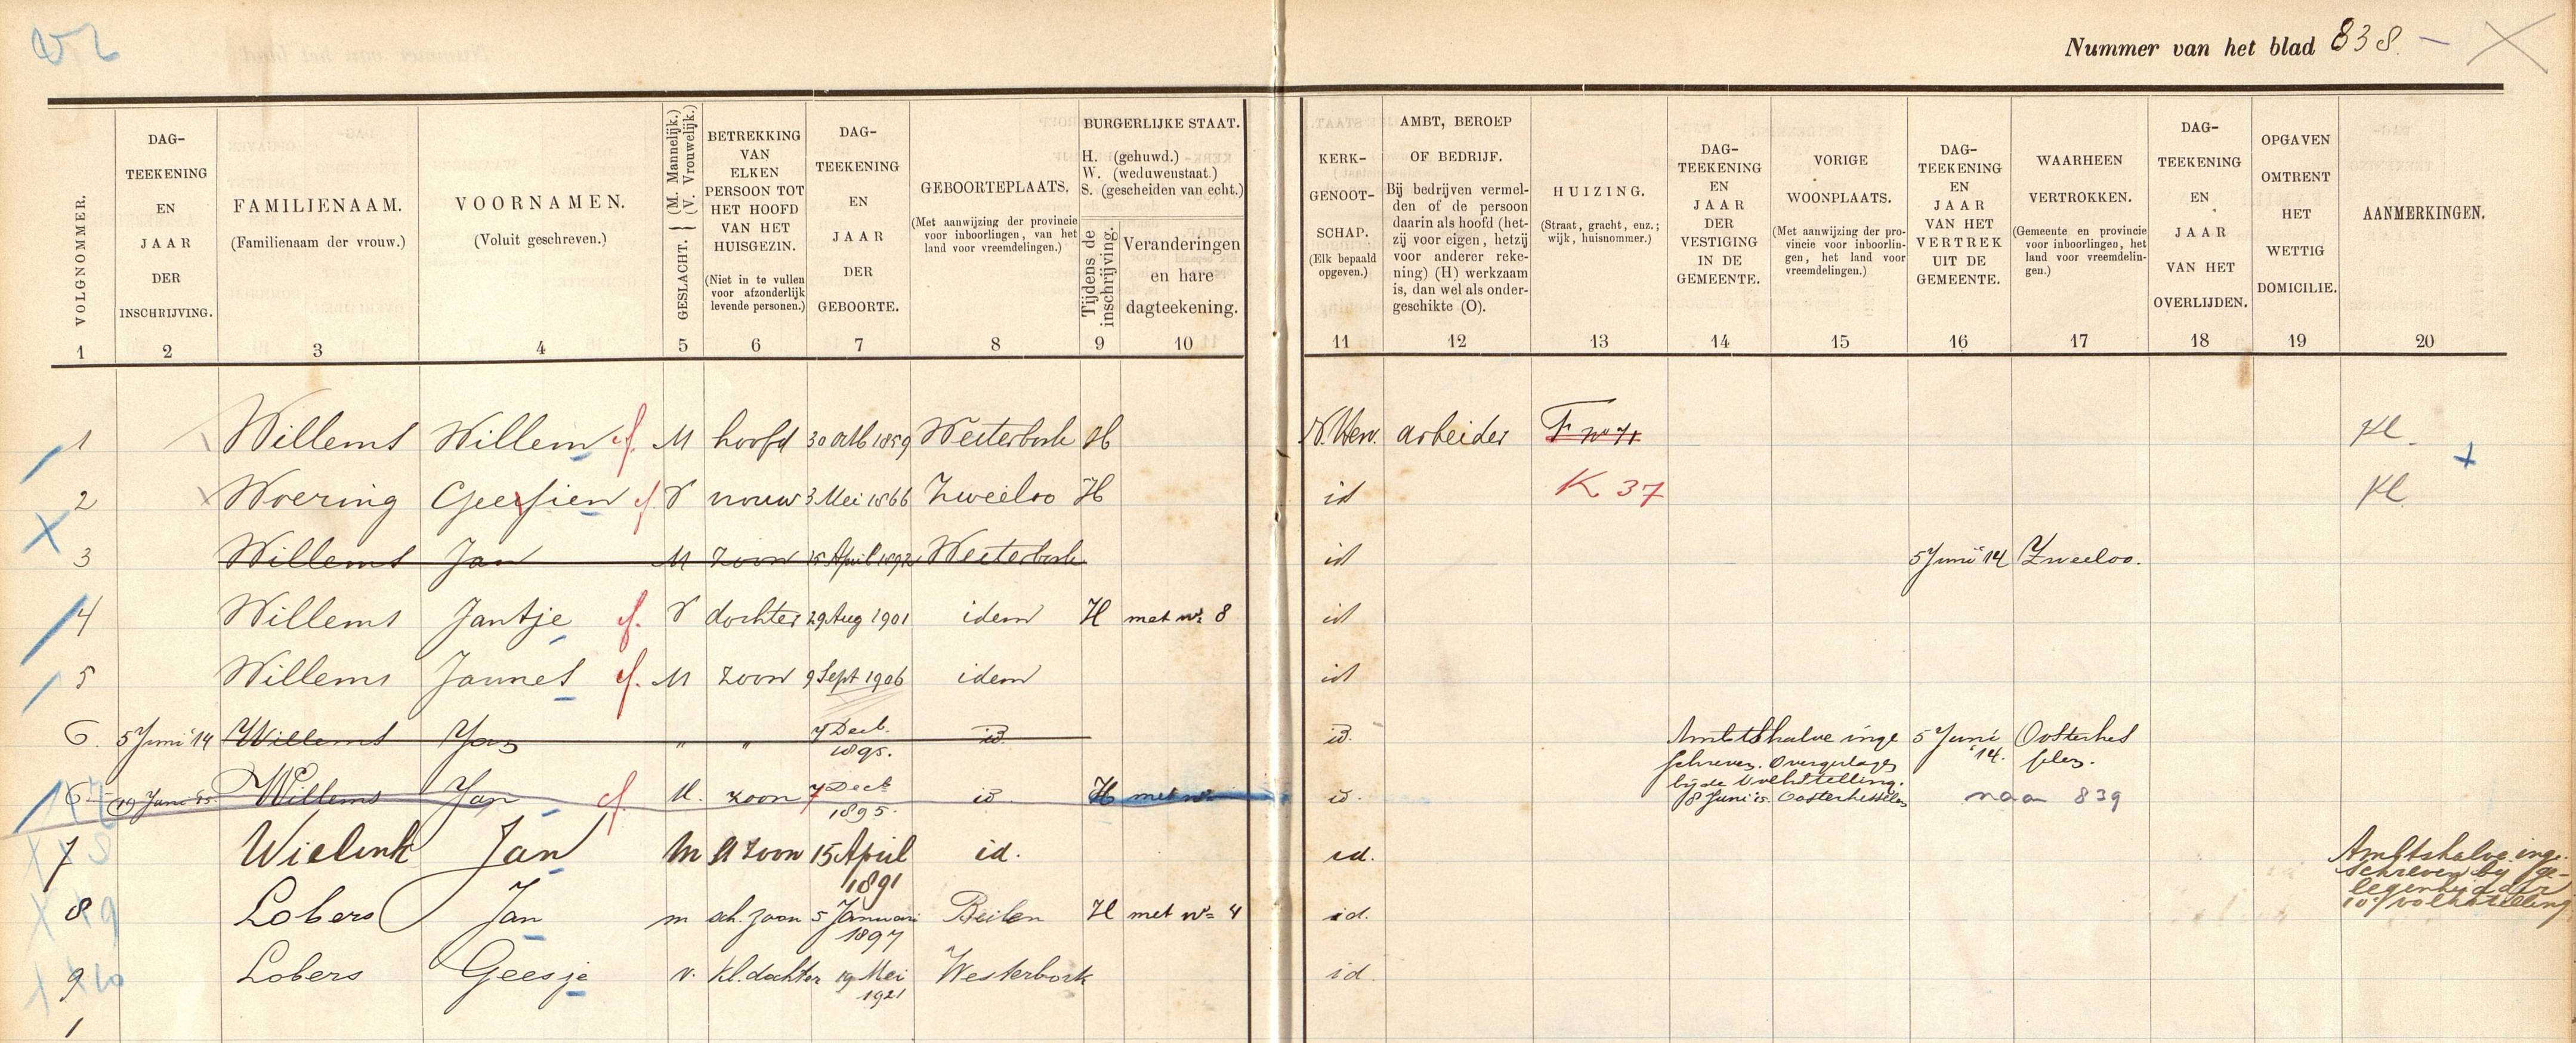 Nummer van het blad 838.
VOLGNOMMER.
1
DAG-
TEEKENING
EN
JAAR
DER
INSCHRIJVING.
2
FAMILIENAAM.
(Familienaam der vrouw.)
3
VOORNAMEN.
(Voluit geschreven.)
4
GESLACHT. { (M. Mannelijk.)
(V. Vrouwelijk.)
5
BETREKKING
VAN
ELKEN
PERSOON TOT
HET HOOFD
VAN HET
HUISGEZIN.
(Niet in te vullen
voor afzonderlijk
levende personen.)
6
DAG-
TEEKENING
EN
JAAR
DER
GEBOORTE.
7
GEBOORTEPLAATS.
(Met aanwijzing der provincie
voor inboorlingen, van het
land voor vreemdelingen.)
8
BURGERLIJKE STAAT.
H. (gehuwd.)
W. (weduwenstaat.)
S. (gescheiden van echt.)
Tijdens de
inschrijving.
9
Veranderingen
en hare
dagteekening.
10
KERK-
GENOOT-
SCHAP.
(Elk bepaald
opgeven.)
11
AMBT, BEROEP
OF BEDRIJF.
Bij bedrijven vermel-
den of de persoon
daarin als hoofd (het-
zij voor eigen, hetzij
voor anderer reke-
ning) (H) werkzaam
is, dan wel als onder-
geschikte (O).
12
HUIZING.
(Straat, gracht, enz.;
wijk, huisnommer.)
13
DAG-
TEEKENING
EN
JAAR
DER
VESTIGING
IN DE
GEMEENTE.
14
VORIGE
WOONPLAATS.
(Met aanwijzing der pro-
vincie voor inboorlin-
gen, het land voor
vreemdelingen.)
15
DAG-
TEEKENING
EN
JAAR
VAN HET
VERTREK
UIT DE
GEMEENTE.
16
WAARHEEN
VERTROKKEN.
(Gemeente en provincie
voor inboorlingen, het
land voor vreemdelin-
gen.)
17
DAG-
TEEKENING
EN
JAAR
VAN HET
OVERLIJDEN.
18
OPGAVEN
OMTRENT
HET
WETTIG
DOMICILIE.
19
AANMERKINGEN.
20
1 Willems Willem M hoofd 30 Octb 1859 Westerbork H N. Herv. arbeider F no 71 Kl.
2 Woering Geesien V vrouw 3 Mei 1866 Zweeloo H id K 37 Kl
3 Willems Jan M zoon 15 April 1892 Westerbork id 5 Juni '14 Zweeloo.
4 Willems Jantje V dochter 29 Aug 1901 idem H met no 8 id
5 Willems Jannes M zoon 9 Sept 1906 idem id
6. 5 Juni '14 Willems Jan " " 7 Decb. id id. Ambtshalve inge 5 Juni Oosterhes
1895. schreven. Overgeslagen '14. selen.
bij de Volkstelling.
6 19 Juni '15. Willems Jan M. zoon 7 Decb id. H met no id. 18 Juni '15. Oosterhesselen naar 839
1895.
7 Wielink Jan m zoon 15 April id. id. Ambtshalve inge-
1891 schreven bij ge-
legenheid der
10e volkstelling
8 Lobers Jan m sch. zoon 5 Januari Beilen H met no 4 id.
1897
9 Lobers Geesje v. kl. dochter 19 Mei Westerbork id.
1921